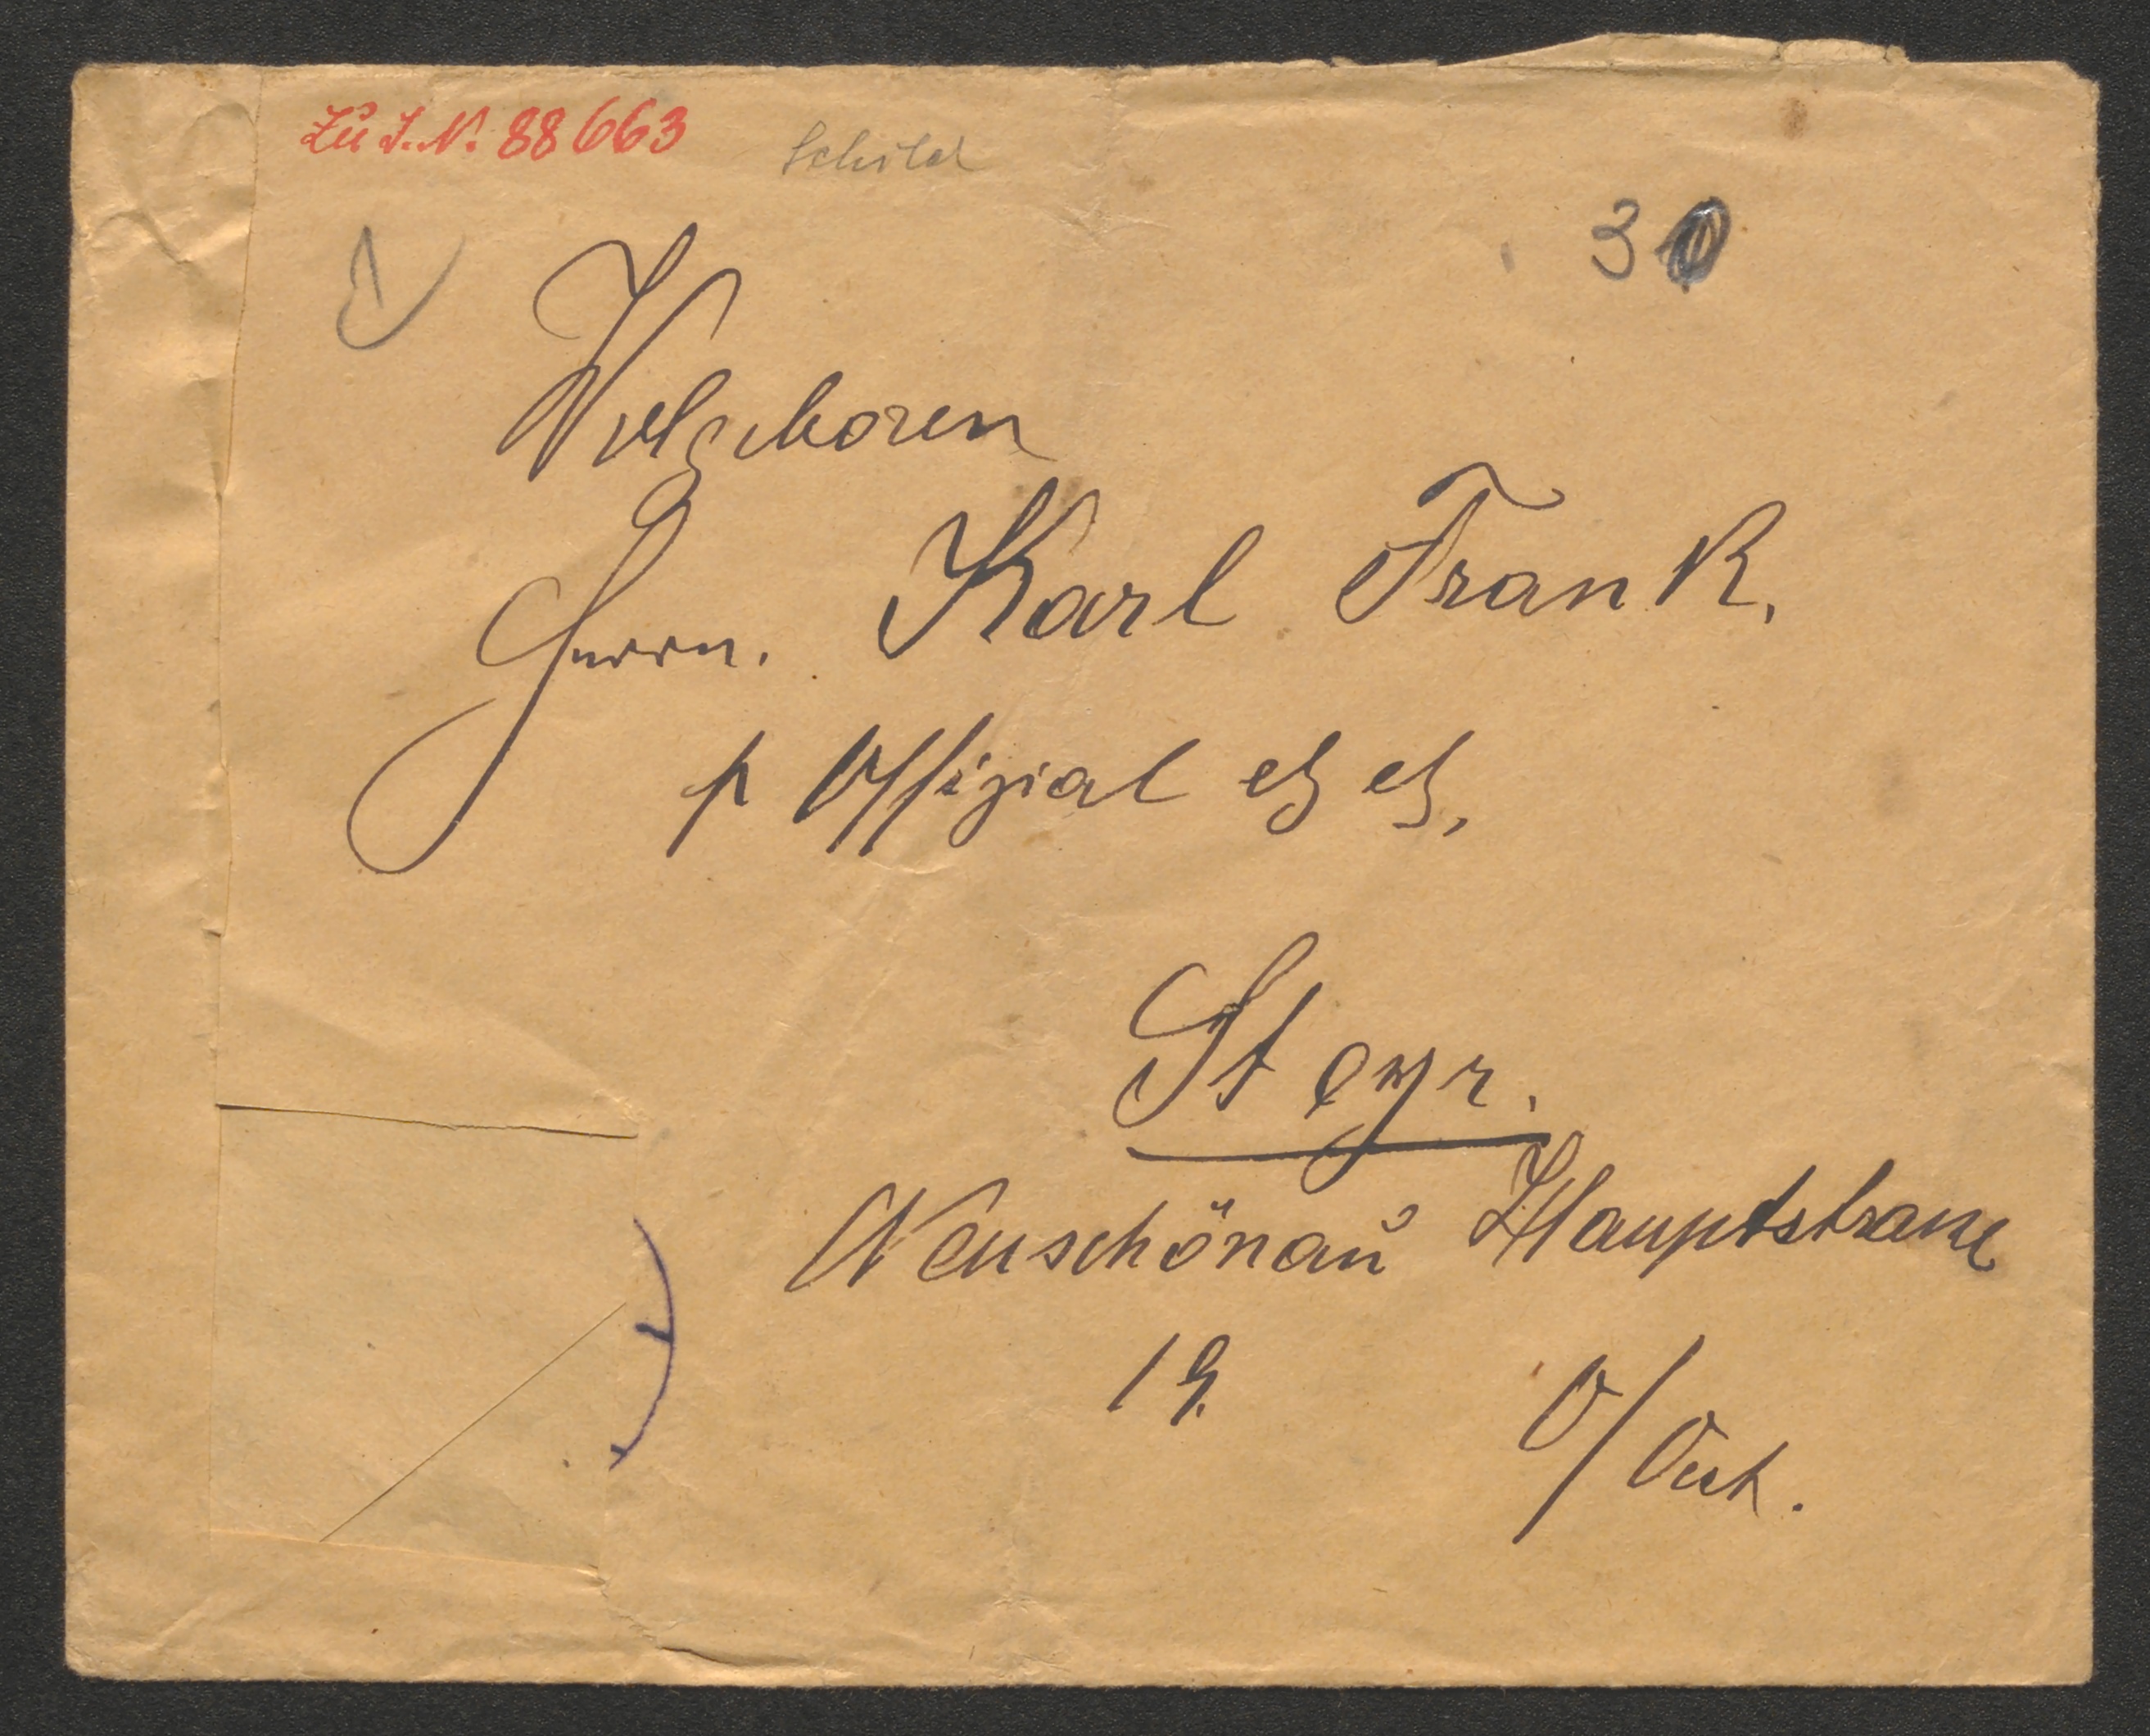 Zu I.N. 88663
Schild
30
Wolgeboren
Herrn. Karl Frank.
p Offizial etz etz.
Steyr.
Neuschönau Hauptstrasse
19.
O/Oest.